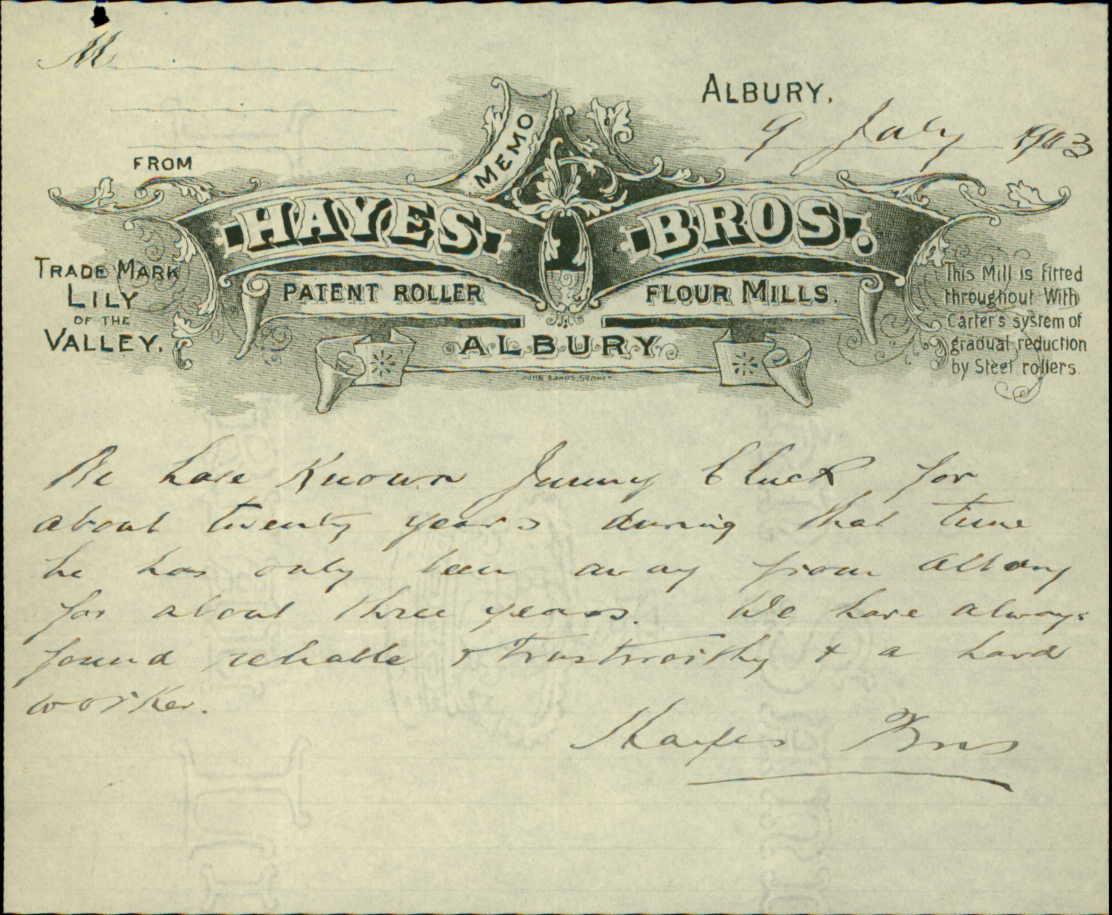 M
ALBURY,
9 July 1903
MEMO
FROM
HAYES BROS.
TRADE MARK
LILY
OF THE
VALLEY.
PATENT ROLLER FLOUR MILLS.
ALBURY
JOHN SANDS, SYDNEY
This Mill is fitted
throughout With
Carter's system of
gradual reduction
by Steel rollers.
We have Known Jimmy Cluck for
about twenty years during that time
he has only been away from Albury
for about three years. We have always
found reliable & trustworthy & a hard
worker.
Hayes Bros